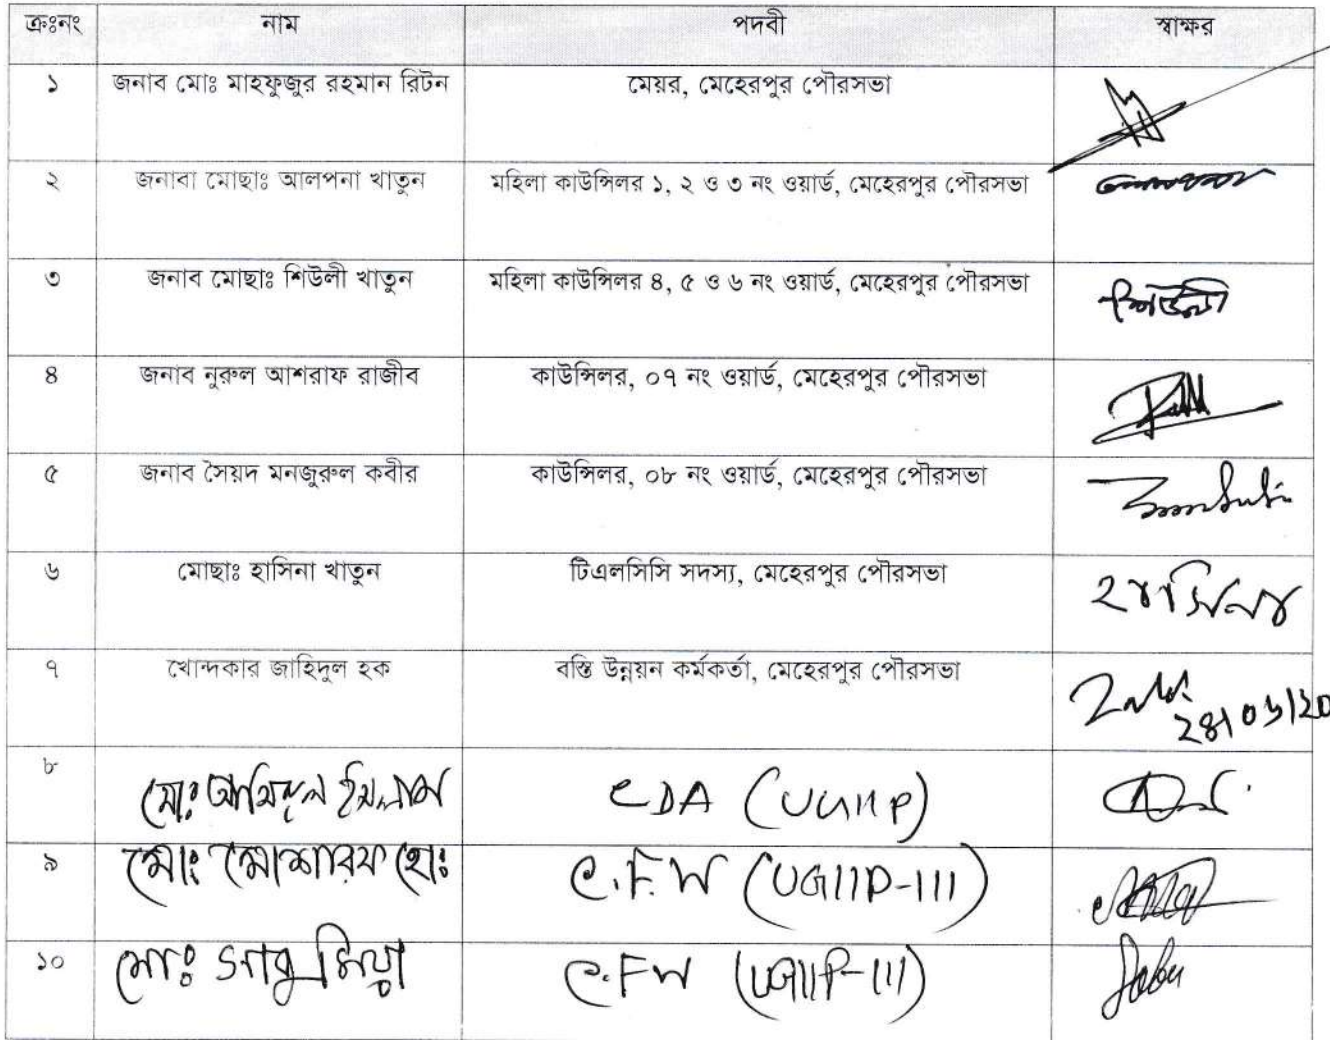 ক্রঃনং নাম পদবী স্বাক্ষর
১ জনাব মোঃ মাহফুজুর রহমান রিটন মেয়র, মেহেরপুর পৌরসভা
২ জনাবা মোছাঃ আলপনা খাতুন মহিলা কাউন্সিলর ১, ২ ও ৩ নং ওয়ার্ড, মেহেরপুর পৌরসভা
৩ জনাব মোছাঃ শিউলী খাতুন মহিলা কাউন্সিলর ৪, ৫ ও ৬ নং ওয়ার্ড, মেহেরপুর পৌরসভা শিউলী
৪ জনাব নুরুল আশরাফ রাজীব কাউন্সিলর, ০৭ নং ওয়ার্ড, মেহেরপুর পৌরসভা
৫ জনাব সৈয়দ মনজুরুল কবীর কাউন্সিলর, ০৮ নং ওয়ার্ড, মেহেরপুর পৌরসভা
৬ মোছাঃ হাসিনা খাতুন টিএলসিসি সদস্য, মেহেরপুর পৌরসভা হাসিনা
৭ খোন্দকার জাহিদুল হক বস্তি উন্নয়ন কর্মকর্তা, মেহেরপুর পৌরসভা
৮ মোঃ আমিনুল ইসলাম CDA (UGIIP)
৯ মোঃ মোশারফ হোঃ C.F.W (UGIIP-III)
১০ মোঃ সাবু মিয়া C.FW (UGIIP-III) Sabu